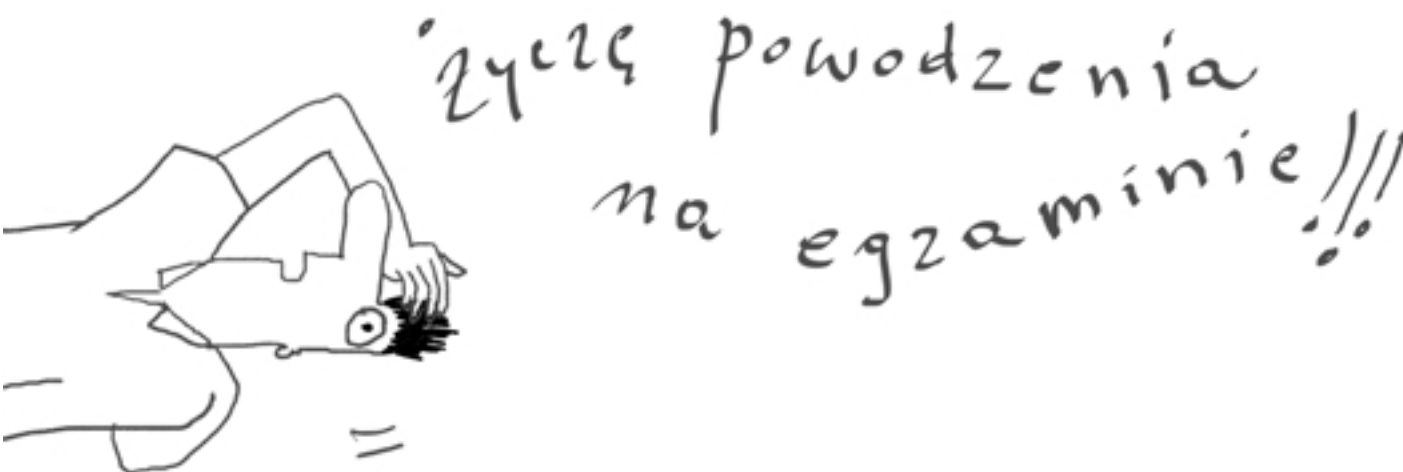 życzę powodzenia
na egzaminie!!!